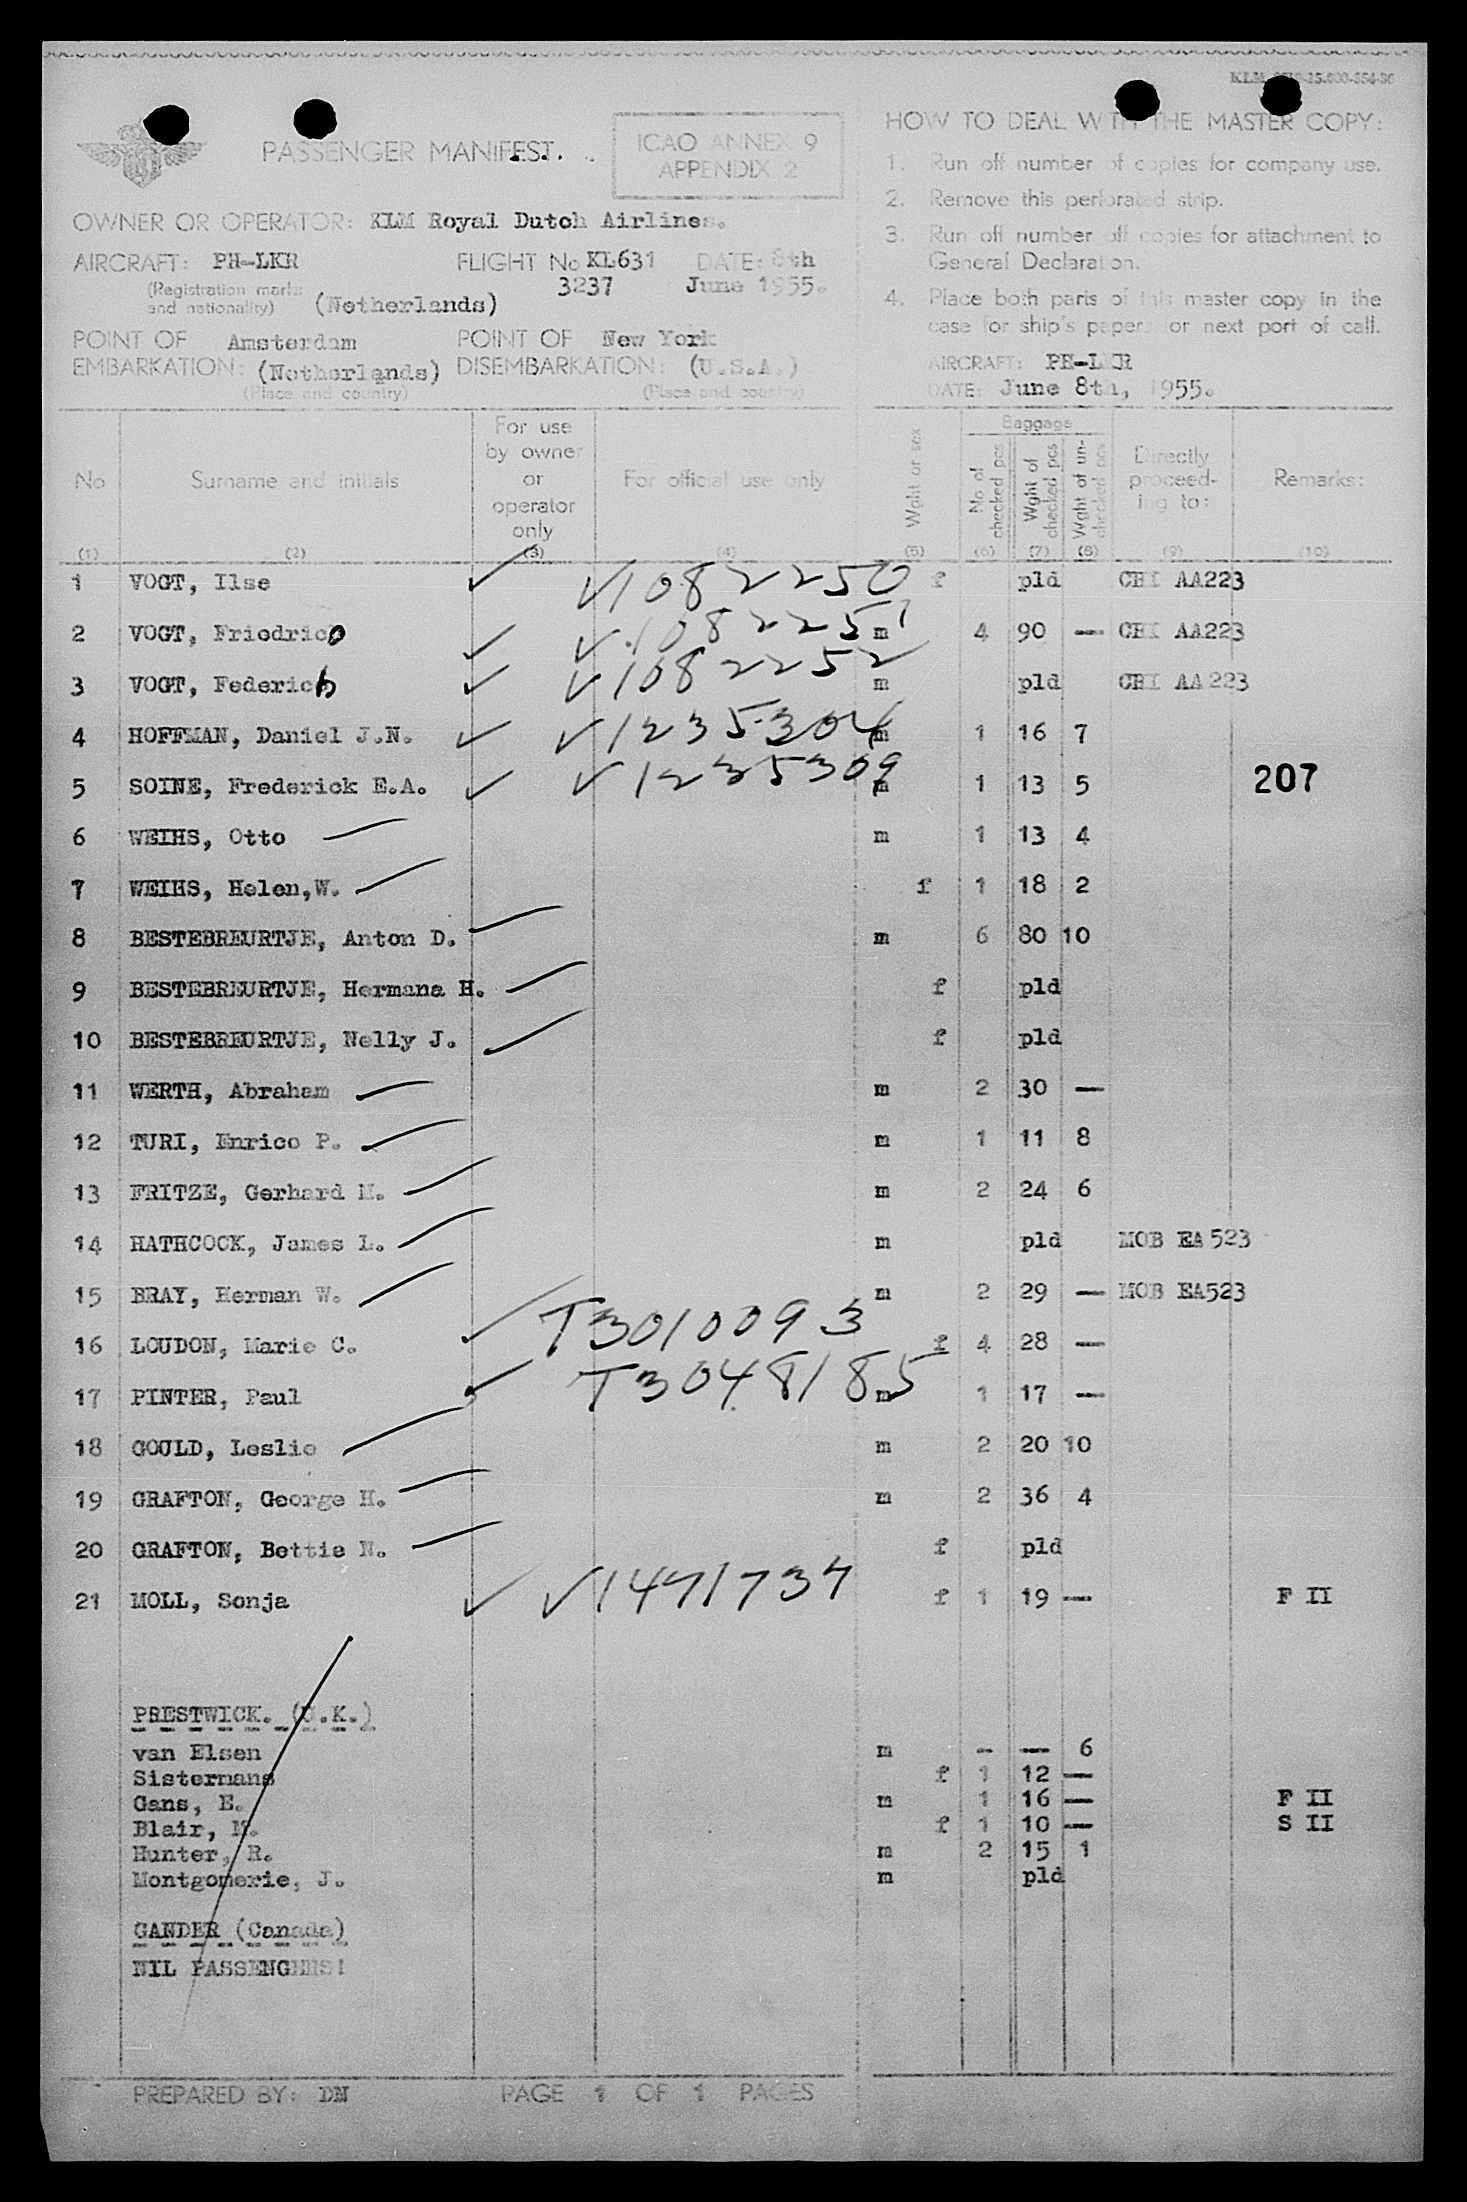 PASSENGER MANIFEST.
ICAO ANNEX 9
APPENDIX 2
OWNER OR OPERATOR: KLM Royal Dutch Airlines.
AIRCRAFT: PH-LKR FLIGHT No KL631 DATE: 8th
(Registration marks and nationality) (Netherlands) 3237 June 1955.
POINT OF EMBARKATION: Amsterdam (Netherlands) POINT OF DISEMBARKATION: New York (U.S.A.)
(Place and country) (Place and country)
HOW TO DEAL WITH THE MASTER COPY:
1. Run off number of copies for company use.
2. Remove this perforated strip.
3. Run off number off copies for attachment to
General Declaration.
4. Place both parts of this master copy in the
case for ship's papers for next port of call.
AIRCRAFT: PH-LKR
DATE: June 8th, 1955.
No Surname and initials For use by owner or operator only For official use only Wght or sex Baggage No of checked pcs Wght of checked pcs Wght of un-checked pcs Directly proceed-ing to: Remarks:
(1) (2) (3) (4) (5) (6) (7) (8) (9) (10)
1 VOGT, Ilse ✓ ✓1082250 f pld CHI AA223
2 VOGT, Friedrich ✓ ✓1082251 m 4 90 — CHI AA223
3 VOGT, Federich ✓ ✓1082252 m pld CHI AA223
4 HOFFMAN, Daniel J.N. ✓ ✓1235304 m 1 16 7
5 SOINE, Frederick E.A. ✓ ✓1235309 m 1 13 5 207
6 WEIHS, Otto m 1 13 4
7 WEIHS, Helen,W. f 1 18 2
8 BESTEBREURTJE, Anton D. m 6 80 10
9 BESTEBREURTJE, Hermana H. f pld
10 BESTEBREURTJE, Nelly J. f pld
11 WERTH, Abraham m 2 30 —
12 TURI, Enrico P. m 1 11 8
13 FRITZE, Gerhard M. m 2 24 6
14 HATHCOCK, James L. m pld MOB EA523
15 BRAY, Herman W. m 2 29 — MOB EA523
16 LOUDON, Marie C. ✓ T3010093 f 4 28 —
17 PINTER, Paul ✓ T3048185 m 1 17 —
18 GOULD, Leslie m 2 20 10
19 GRAFTON, George H. m 2 36 4
20 GRAFTON, Bettie N. f pld
21 MOLL, Sonja ✓ ✓1471737 f 1 19 — F II
PRESTWICK. (U.K.)
van Elsen m - — 6
Sistermans f 1 12 —
Gans, E. m 1 16 — F II
Blair, M. f 1 10 — S II
Hunter, R. m 2 15 1
Montgomerie, J. m pld
GANDER (Canada)
NIL PASSENGERS!
PREPARED BY: DN PAGE 1 OF 1 PAGES